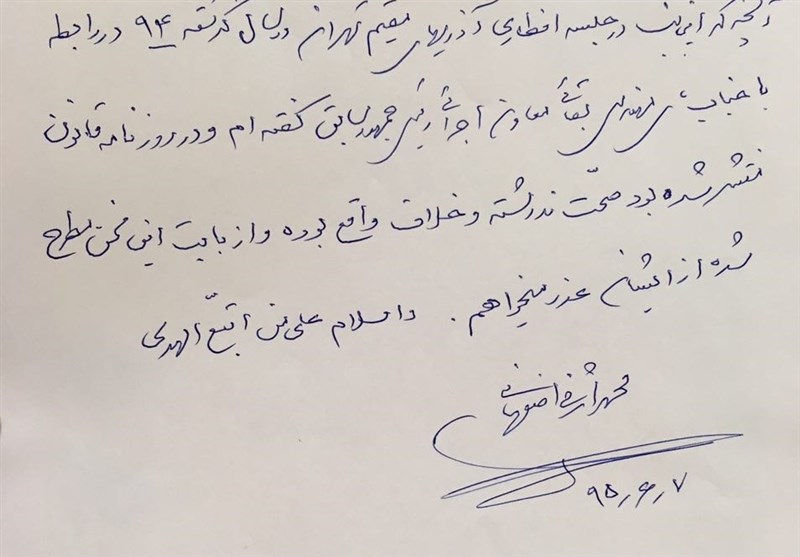 آنچه که اینجانب در جلسه افطاری آذریهای مقیم تهران در سال گذشته ۹۴ در رابطه
با جناب مهندس بقائی معاون اجرائی رئیس جمهور سابق گفته ام و در روزنامه قانون
منتشر شده بود صحّت نداشته و خلاف واقع بوده و از بابت این سخن مطرح
شده از ایشان عذر میخواهم . والسلام علی من اتبّع الهدی
محمد اشرفی اصفهانی
۹۵٫۶٫۷